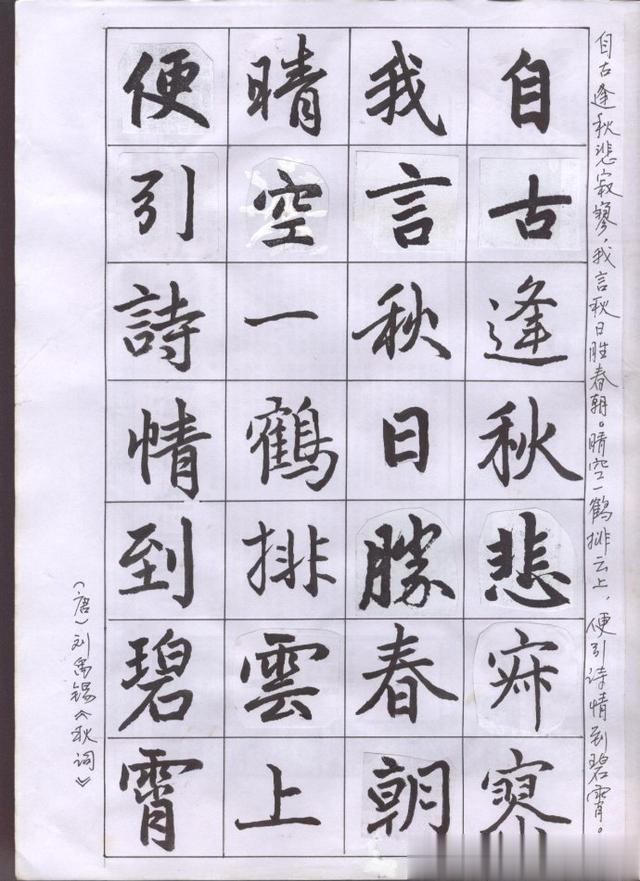 自古逢秋悲寂寥，我言秋日胜春朝。晴空一鹤排云上，便引诗情到碧霄。
自古逢秋悲寂寥
我言秋日勝春朝
晴空一鶴排雲上
便引詩情到碧霄
（唐）刘禹锡《秋词》